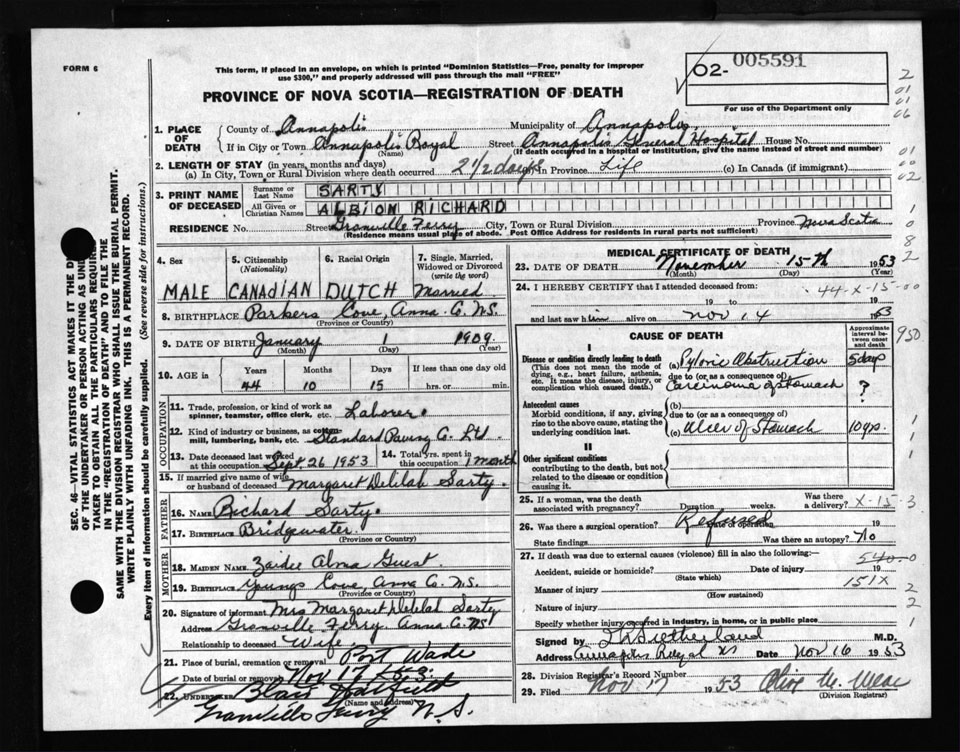 FORM 6
This form, if placed in an envelope, on which is printed "Dominion Statistics—Free, penalty for improper
use $300," and properly addressed will pass through the mail "FREE"
O2- 005591
For use of the Department only
PROVINCE OF NOVA SCOTIA—REGISTRATION OF DEATH
1. PLACE OF DEATH
County of Annapolis Municipality of Annapolis
If in City or Town Annapolis Royal Street Annapolis General Hospital House No.
(Name) (If death occurred in a hospital or institution, give the name instead of street and number)
2. LENGTH OF STAY (in years, months and days)
(a) In City, Town or Rural Division where death occurred 2 1/2 days (b) In Province Life (c) In Canada (if immigrant)
3. PRINT NAME OF DECEASED
Surname or Last Name SARTY
All Given or Christian Names ALBION RICHARD
RESIDENCE No. Street Granville Ferry City, Town or Rural Division Province Nova Scotia
(Residence means usual place of abode. Post Office Address for residents in rural parts not sufficient)
4. Sex MALE
5. Citizenship (Nationality) CANADIAN
6. Racial Origin DUTCH
7. Single, Married, Widowed or Divorced (write the word) Married
8. BIRTHPLACE Parkers Cove, Anna. Co. N.S.
(Province or Country)
9. DATE OF BIRTH January 1 1909
(Month) (Day) (Year)
10. AGE in Years Months Days If less than one day old
44 10 15 hrs. or min.
OCCUPATION
11. Trade, profession, or kind of work as
spinner, teamster, office clerk, etc. Laborer
12. Kind of industry or business, as cotton-
mill, lumbering, bank, etc. Standard Paving Co. Ltd
13. Date deceased last worked
at this occupation Sept. 26 1953
14. Total yrs. spent in
this occupation 1 month
15. If married give name of wife
or husband of deceased Margaret Delilah Sarty
FATHER
16. NAME Richard Sarty
17. BIRTHPLACE Bridgewater
(Province or Country)
MOTHER
18. MAIDEN NAME Zaidee Alma Guest
19. BIRTHPLACE Youngs Cove, Anna Co. N.S.
(Province or Country)
20. Signature of informant Mrs Margaret Delilah Sarty
Address Granville Ferry, Anna Co. NS
Relationship to deceased Wife
21. Place of burial, cremation or removal Port Wade
Date of burial or removal Nov 17 1953
22. UNDERTAKER Blair
(Name and address)
Granville Ferry N.S.
MEDICAL CERTIFICATE OF DEATH
23. DATE OF DEATH November 15th 1953
(Month) (Day) (Year)
24. I HEREBY CERTIFY that I attended deceased from:
44-X-15-00
19 to 19
and last saw him alive on Nov 14 1953
CAUSE OF DEATH
Approximate interval between onset and death
I
Disease or condition directly leading to death
(This does not mean the mode of dying, e.g., heart failure, asthenia, etc. It means the disease, injury, or complication which caused death.)
(a) Pyloric Obstruction 5 days
due to (or as a consequence of)
Carcinoma of Stomach ?
Antecedent causes
Morbid conditions, if any, giving rise to the above cause, stating the underlying condition last.
(b)
due to (or as a consequence of)
(c) Ulcer of Stomach 10 yrs.
II
Other significant conditions
contributing to the death, but not related to the disease or condition causing it.
25. If a woman, was the death
associated with pregnancy? Duration weeks. Was there a delivery? X-15-3
26. Was there a surgical operation? Refused Date of operation 19
State findings Was there an autopsy? No
27. If death was due to external causes (violence) fill in also the following:—
540.0
Accident, suicide or homicide? Date of injury 19
(State which)
Manner of injury 151X
(How sustained)
Nature of injury
Specify whether injury occurred in industry, in home, or in public place
Signed by M.D.
Address Annapolis Royal NS Date Nov 16 1953
28. Division Registrar's Record Number
29. Filed Nov 17 1953 Olive M.
(Division Registrar)
SEC. 46—VITAL STATISTICS ACT MAKES IT THE
OF THE UNDERTAKER OR PERSON ACTING AS
TAKER TO OBTAIN ALL THE PARTICULARS
IN THE "REGISTRATION OF DEATH" AND TO FILE THE
SAME WITH THE DIVISION REGISTRAR WHO SHALL ISSUE THE BURIAL PERMIT.
WRITE PLAINLY WITH UNFADING INK. THIS IS A PERMANENT RECORD.
Every item of information should be carefully supplied. (See reverse side for instructions.)
950